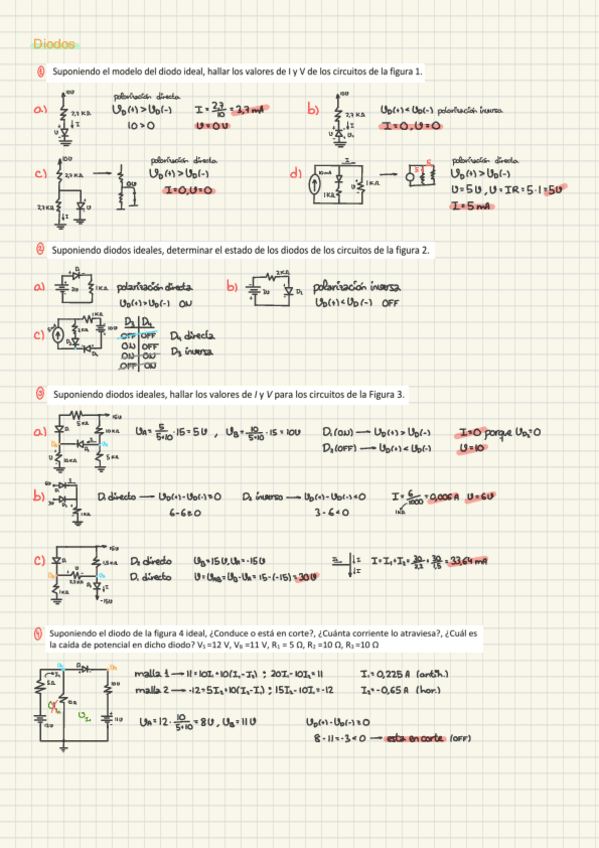 Diodos
① Suponiendo el modelo del diodo ideal, hallar los valores de I y V de los circuitos de la figura 1.
a) polarización directa
U_D(+) > U_D(-)
10 > 0
I = 2,7/10 = 3,7 mA
U = 0 U
b) U_D(+) < U_D(-) polarización inversa
I = 0, U = 0
c) polarización directa
U_D(+) > U_D(-)
I = 0, U = 0
d) polarización directa
U_D(+) > U_D(-)
U = 5 U, U = IR = 5·1 = 5U
I = 5 mA
② Suponiendo diodos ideales, determinar el estado de los diodos de los circuitos de la figura 2.
a) polarización directa
U_D(+) > U_D(-) ON
b) polarización inversa
U_D(+) < U_D(-) OFF
c) D₃ D₄
OFF OFF
ON OFF
ON ON
OFF ON
D₄ directa
D₃ inversa
③ Suponiendo diodos ideales, hallar los valores de I y V para los circuitos de la Figura 3.
a) U_A = 5/(5+10) · 15 = 5 U, U_B = 10/(5+10) · 15 = 10U
D₁ (ON) → U_D(+) > U_D(-)
D₂ (OFF) → U_D(+) < U_D(-)
I = 0 porque U_D₂ = 0
U = 10
b) D₁ directo → U_D(+) - U_D(-) ≥ 0
6 - 6 ≥ 0
D₂ inverso → U_D(+) - U_D(-) < 0
3 - 6 < 0
I = 6/1000 = 0,006 A U = 6U
1KΩ
c) D₂ directo U_B = 15 U, U_A = -15U
D₁ directo U = U_AB = U_B - U_A = 15 - (-15) = 30 U
I = I₁ + I₂ = 30/2,2 + 30/1,5 = 33,64 mA
④ Suponiendo el diodo de la figura 4 ideal, ¿Conduce o está en corte?, ¿Cuánta corriente lo atraviesa?, ¿Cuál es
la caída de potencial en dicho diodo? V₁ =12 V, V₀ =11 V, R₁ = 5 Ω, R₂ =10 Ω, R₃ =10 Ω
malla 1 → 11 = 10I₁ + 10(I₁ - I₂) ; 20I₁ - 10I₂ = 11
malla 2 → -12 = 5I₂ + 10(I₂ - I₁) ; 15I₂ - 10I₁ = -12
I₁ = 0,225 A (antih.)
I₂ = -0,65 A (hor.)
U_A = 12 · 10/(5+10) = 8U, U_B = 11 U
U_D(+) - U_D(-) ≥ 0
8 - 11 = -3 < 0 → esta en corte (OFF)